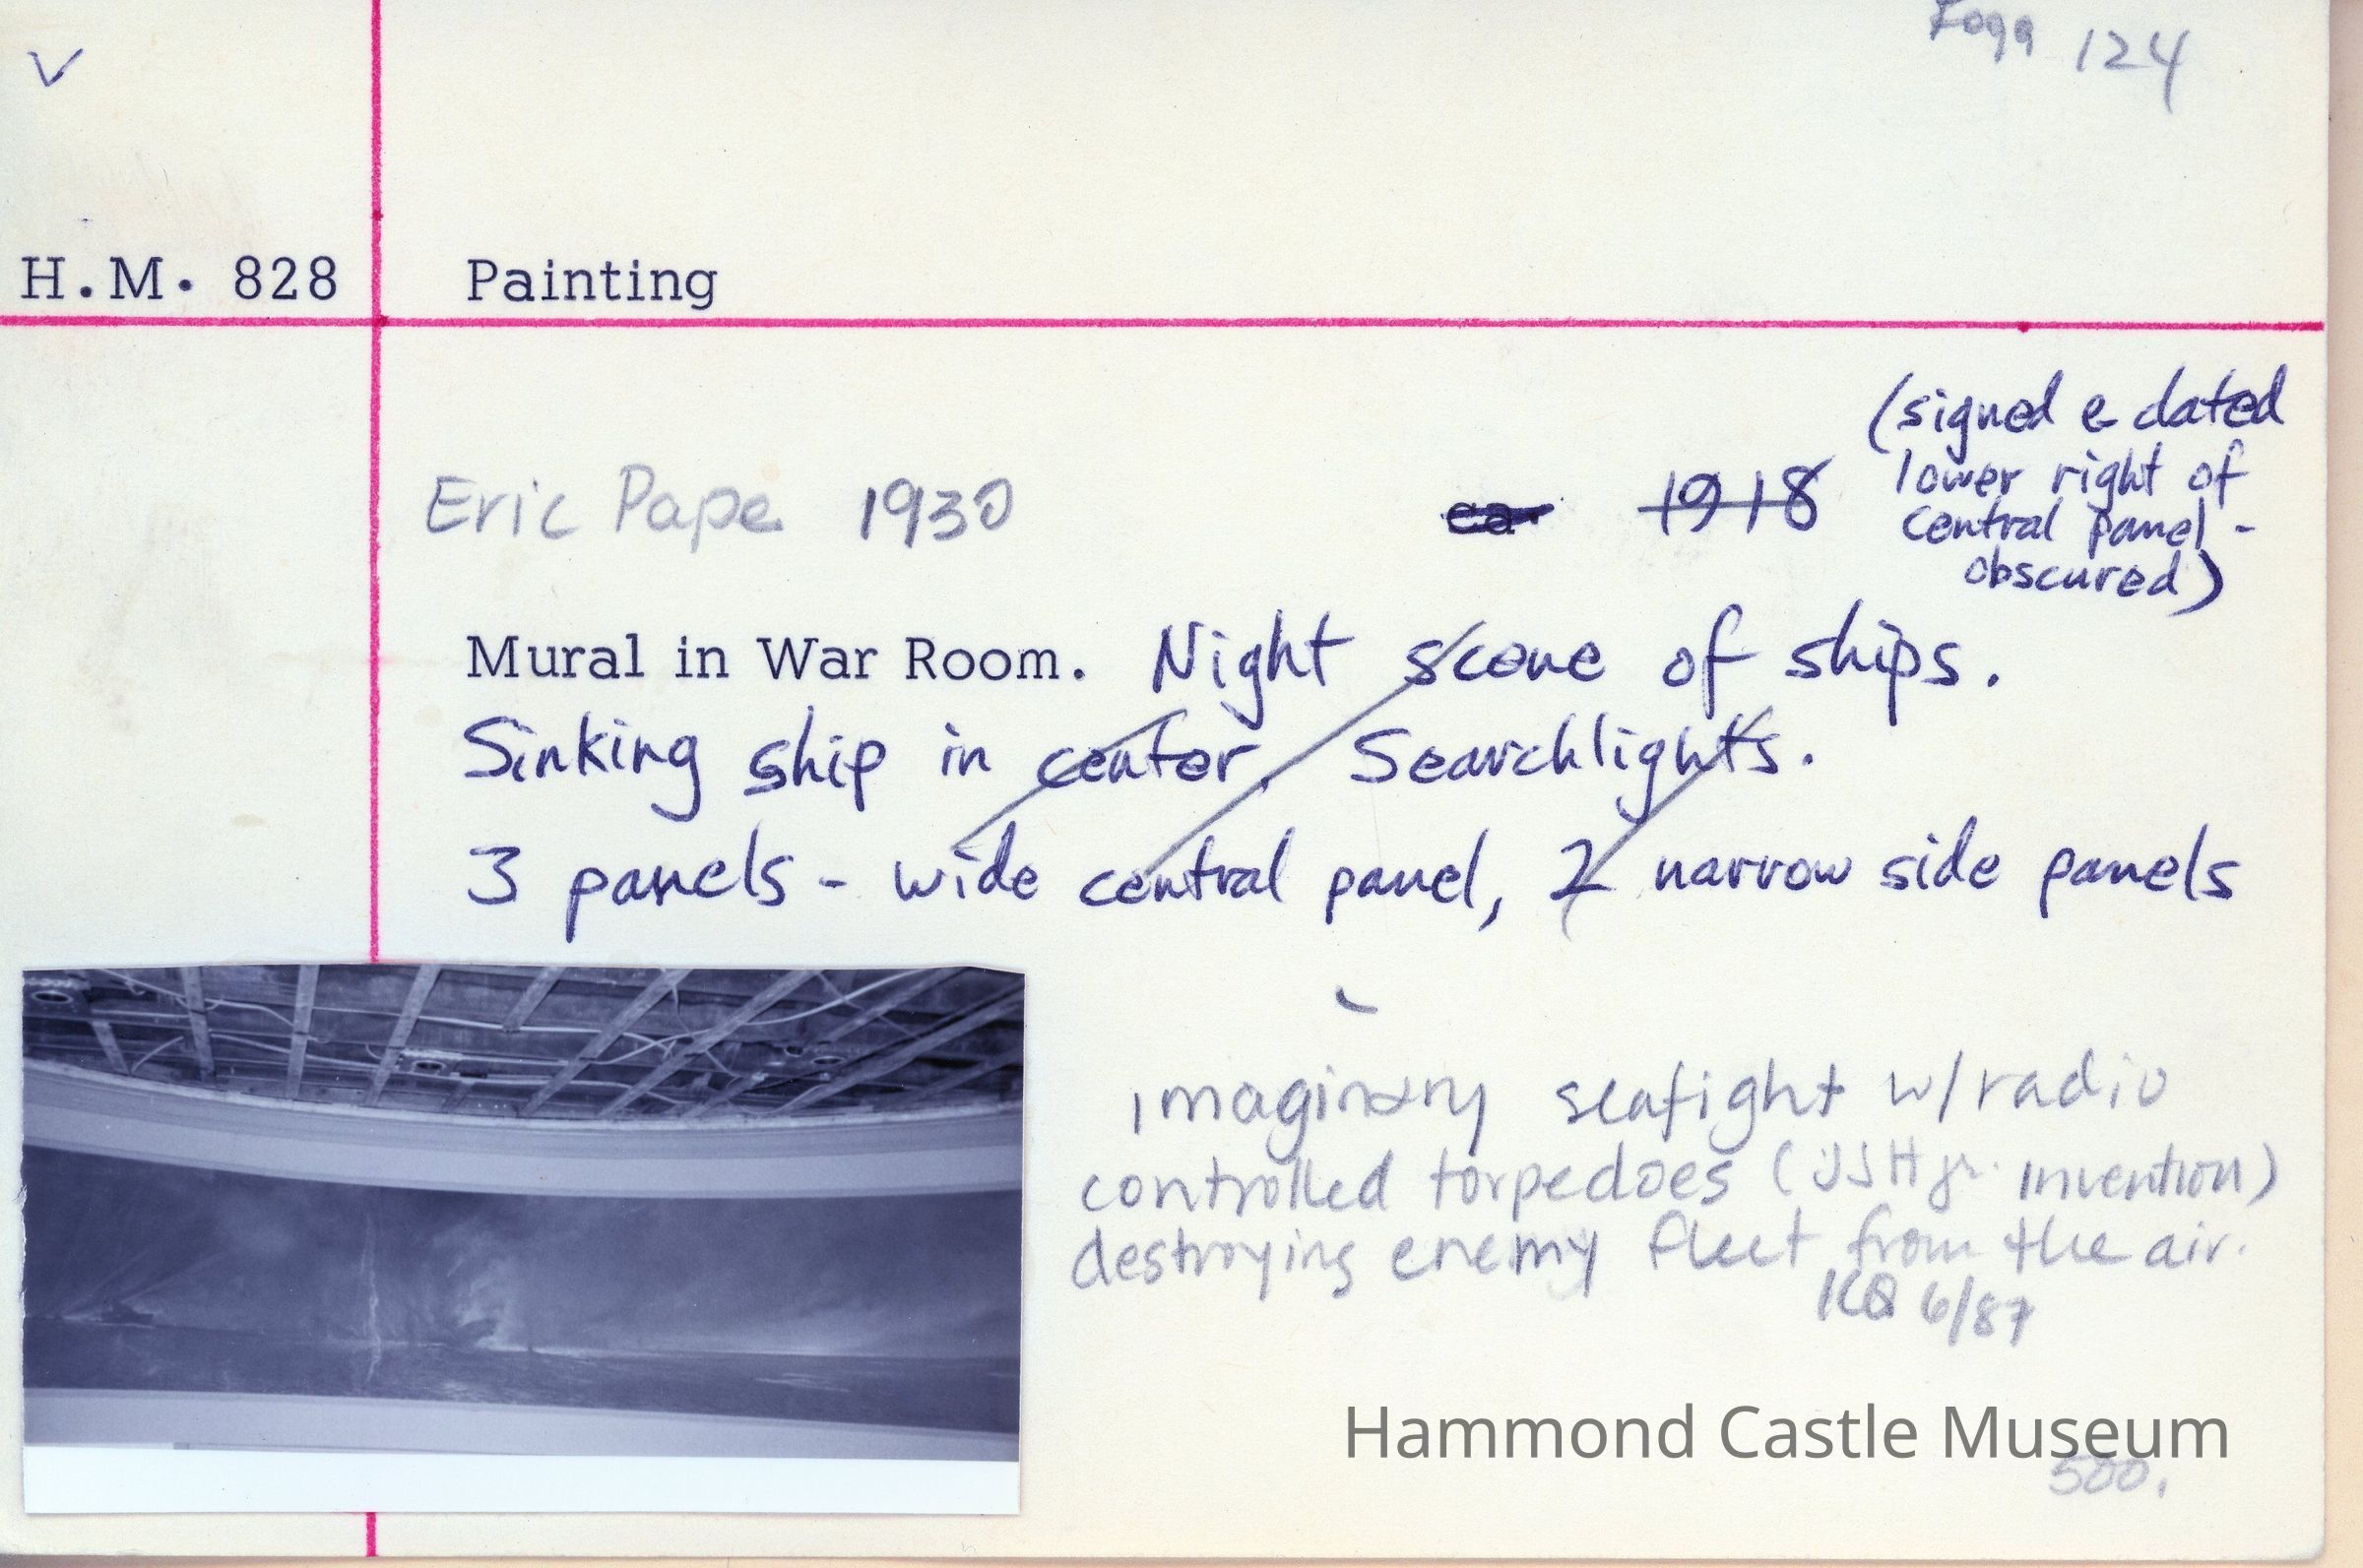 ✓
Fogg 124
H.M. 828 Painting
(signed & dated
lower right of
central panel -
obscured)
Eric Pape 1930 ca. 1918
Mural in War Room. Night scene of ships.
Sinking ship in center. Searchlights.
3 panels - wide central panel, 2 narrow side panels
imaginary seafight w/radio
controlled torpedoes (JJH jr. invention)
destroying enemy fleet from the air.
KQ 6/87
Hammond Castle Museum
500.